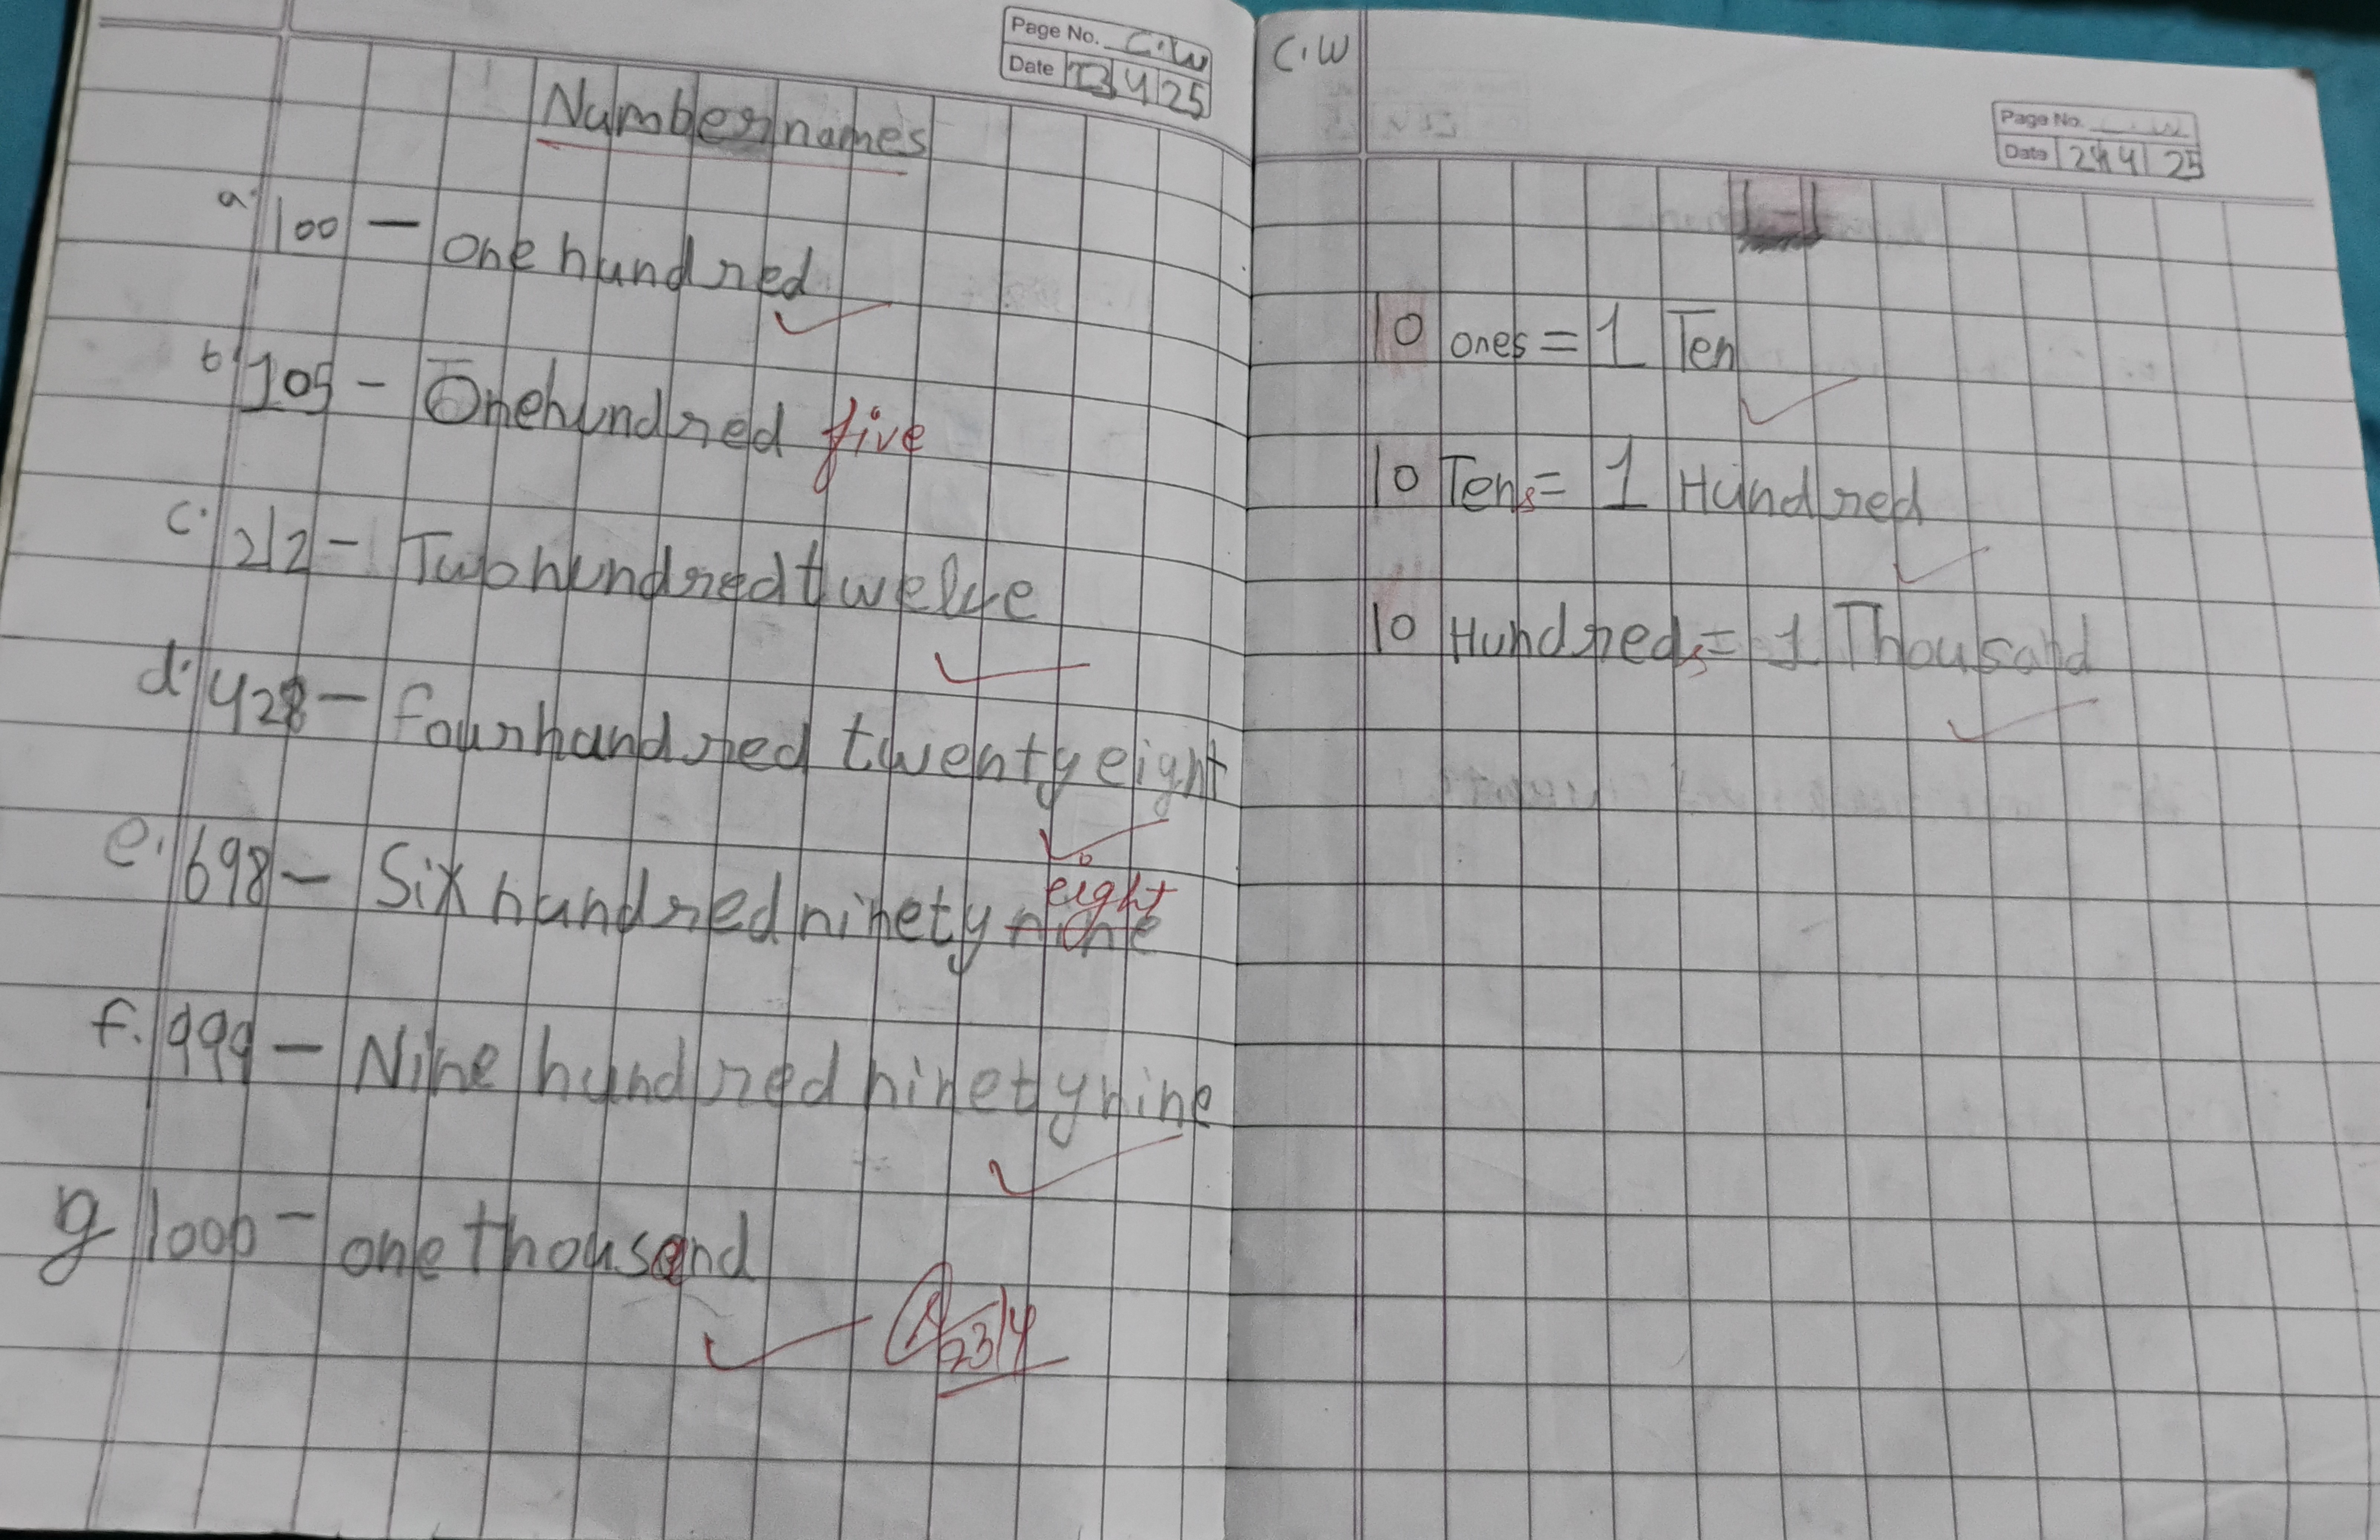 Page No. C.W
Date 23 4 25
Number names
a. 100 - one hundred
b. 105 - One hundred five
c. 212 - Two hundred twelve
d. 428 - four hundred twenty eight
eight
e. 698 - Six hundred ninety nine
f. 999 - Nine hundred ninety nine
g 1000 - one thousand
23/4
C.W
Page No. C.W
Date 24 4 25
10 ones = 1 Ten
10 Tens = 1 Hundred
10 Hundreds = 1 Thousand